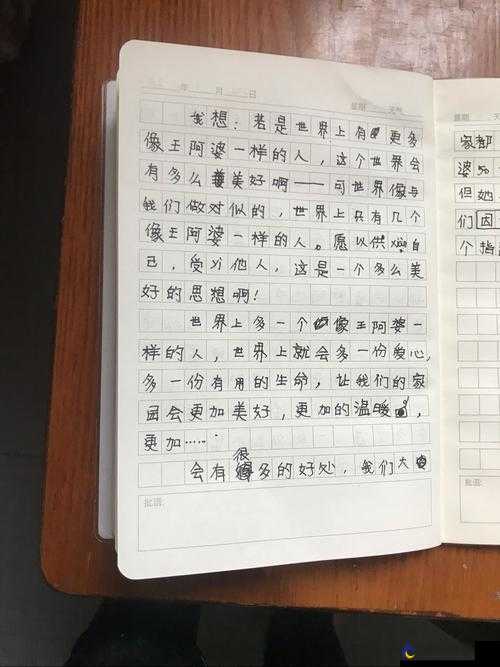 年 月 日 星期 天气
我想：若是世界上有更多
像王阿婆一样的人，这个世界会
有多么美好啊——可世界像与
我们做对似的，世界上只有几个
像王阿婆一样的人。愿以供自
己，受兴他人，这是一个多么美
好的思想啊！
世界上多一个像王阿婆一
样的人，世界上就会多一份爱心，
多一份有用的生命，让我们的家
园会更加美好，更加的温暖，
更加……
会有很多的好处，我们大
批语:
星期 天
家都
婆50一
但她
们因
个指